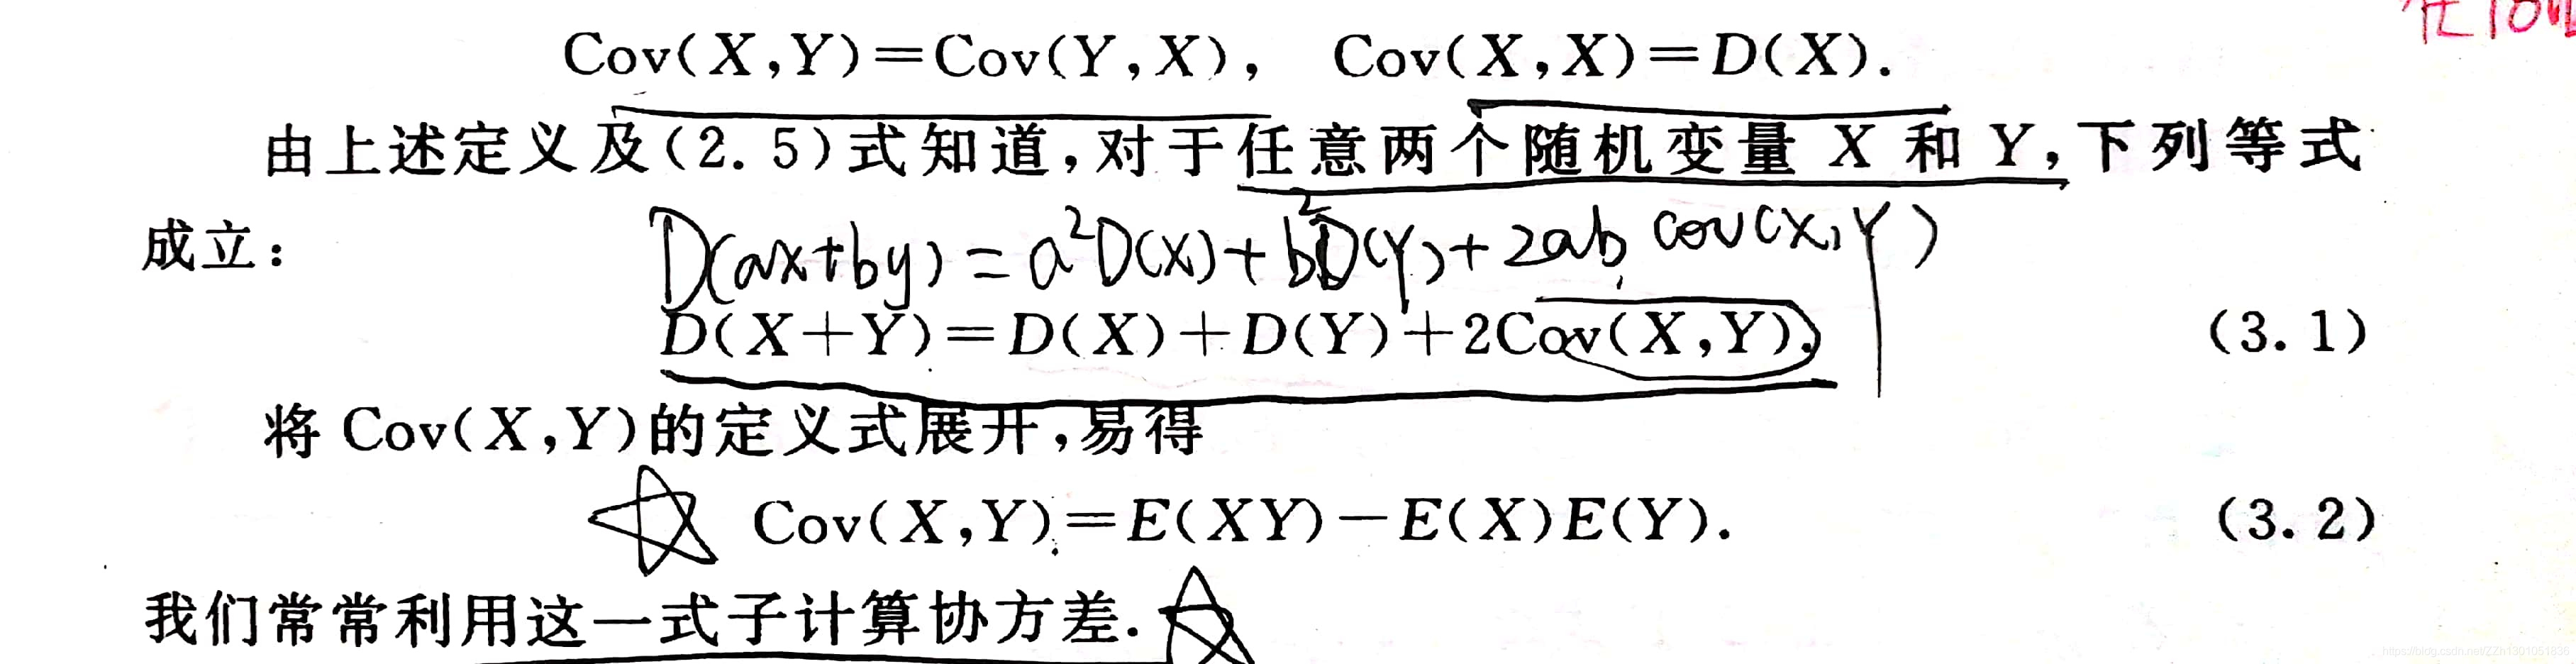 Cov(X,Y)=Cov(Y,X), Cov(X,X)=D(X).
由上述定义及(2.5)式知道,对于任意两个随机变量 X 和 Y,下列等式
成立:
D(ax+by)=a²D(X)+b²D(Y)+2ab cov(X,Y)
D(X+Y)=D(X)+D(Y)+2Cov(X,Y). (3.1)
将 Cov(X,Y)的定义式展开,易得
Cov(X,Y)=E(XY)-E(X)E(Y). (3.2)
我们常常利用这一式子计算协方差.